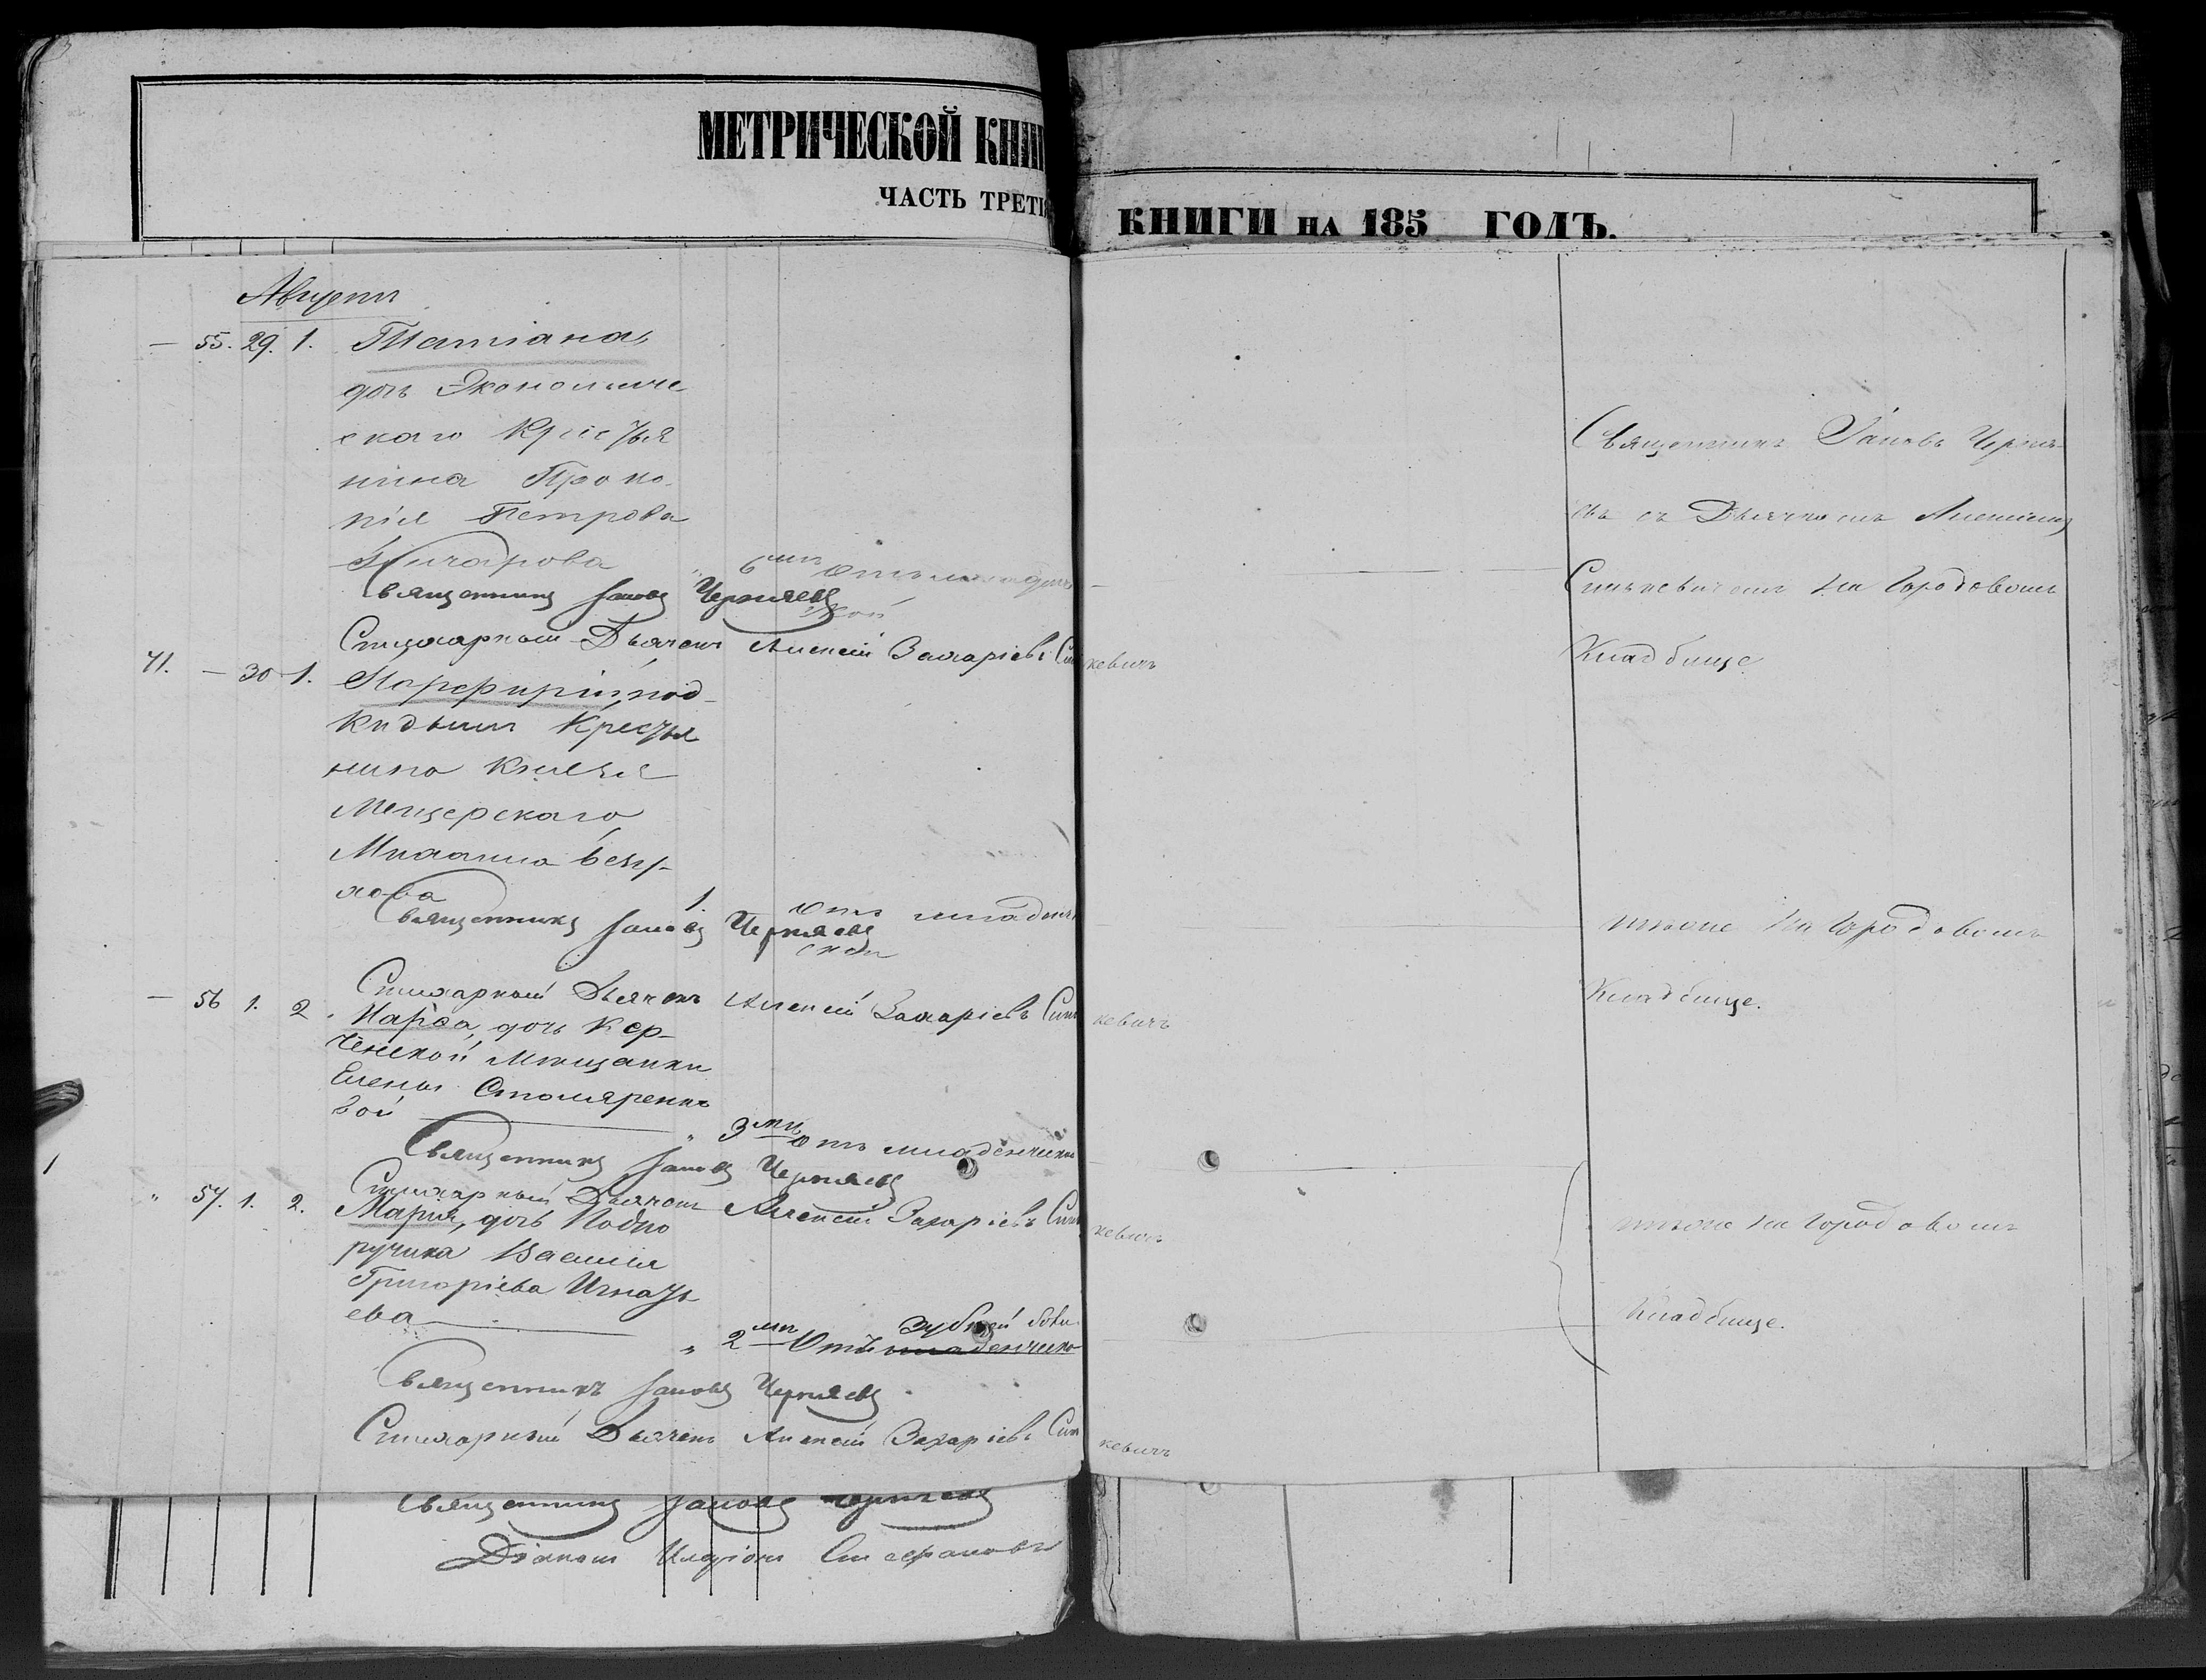 МЕТРИЧЕСКОЙ КНИ
ЧАСТЬ ТРЕТІ
КНИГИ НА 185 ГОДЪ.
Августъ
— 55. 29. 1. Татіана,
дочь Экономиче
скаго Крестья
нина Проко
пія Петрова
" 6 мц отъ младенч
ской
Священникъ Іаковъ Черняевъ
Стихарный Дьячекъ Алексѣй Захаріевъ Синькевичъ
41. — 30 1. Порфирій, под
кидышъ Крестья
нина Князя
Мещерскаго
Михаила
1. отъ младенч
ской
Священникъ Іаковъ Черняевъ
Стихарный Дьячекъ Алексѣй Захаріевъ Синькевичъ
— 56 1. 2. дочь Кер
ченской Мѣщанки
Елены Столяренко
вой
" 3 мц отъ младенческ
Священникъ Іаковъ Черняевъ
Стихарный Дьячекъ Алексѣй Захаріевъ Синькевичъ
" 57. 1. 2. Марія, дочь Подпо
ручика Василія
Григоріева Игнать
ева
" 2 мц Отъ младенческо зубной боли
Священникъ Іаковъ Черняевъ
Стихарный Дьячекъ Алексѣй Захаріевъ Синькевичъ
Священникъ Іаковъ Черняевъ
Діаконъ Иларіонъ Стефановъ
Священникъ Іаковъ Черня
евъ съ Дьячкомъ Алексіемъ
Синькевичемъ на Городовомъ
Кладбище.
тоже на Городовомъ
Кладбище.
тоже на Городовомъ
Кладбище.